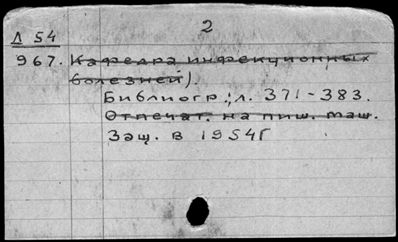 2
Д 54
967. Кафедра инфекционных
болезней).
Библиогр.: л. 371-383.
Отпечат. на пиш. маш.
Защ. в 1954г